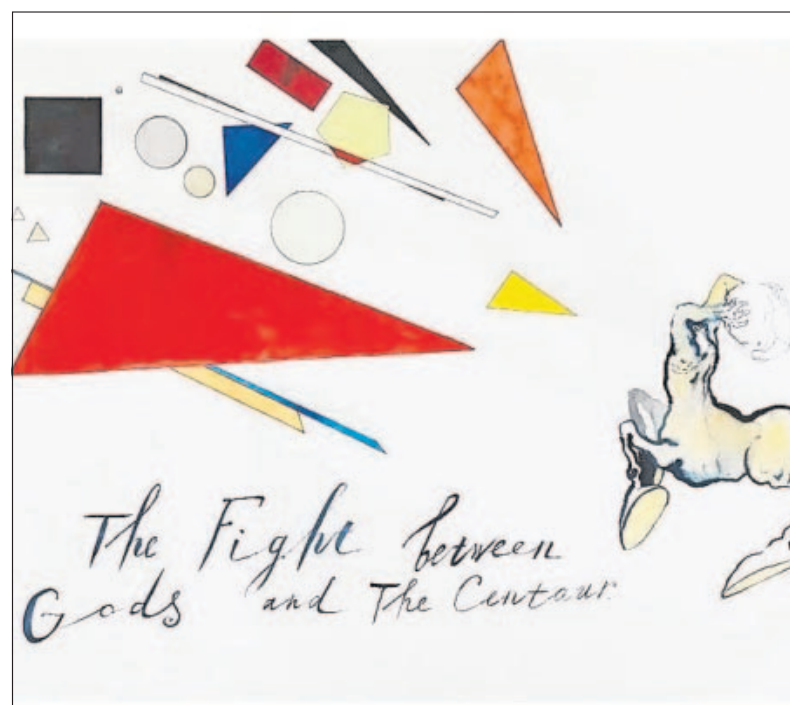 The Fight between
Gods and The Centaur